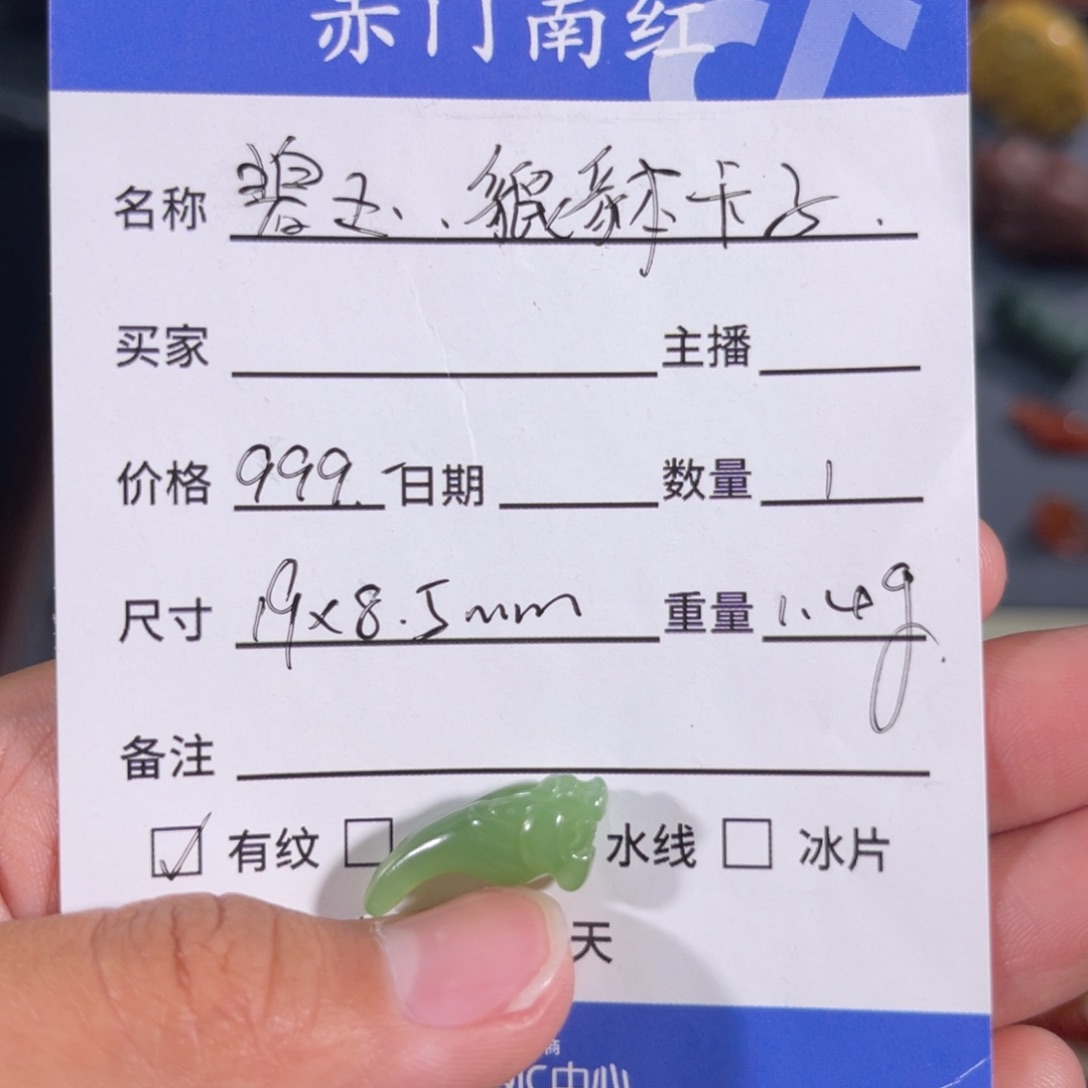 赤门南红
名称 碧玉..貔貅本卡占.
买家 主播
价格 999. 日期 数量 1
尺寸 19x8.5mm 重量 1.4g.
备注
☑ 有纹 □ 水线 □ 冰片
天
商
IC中心